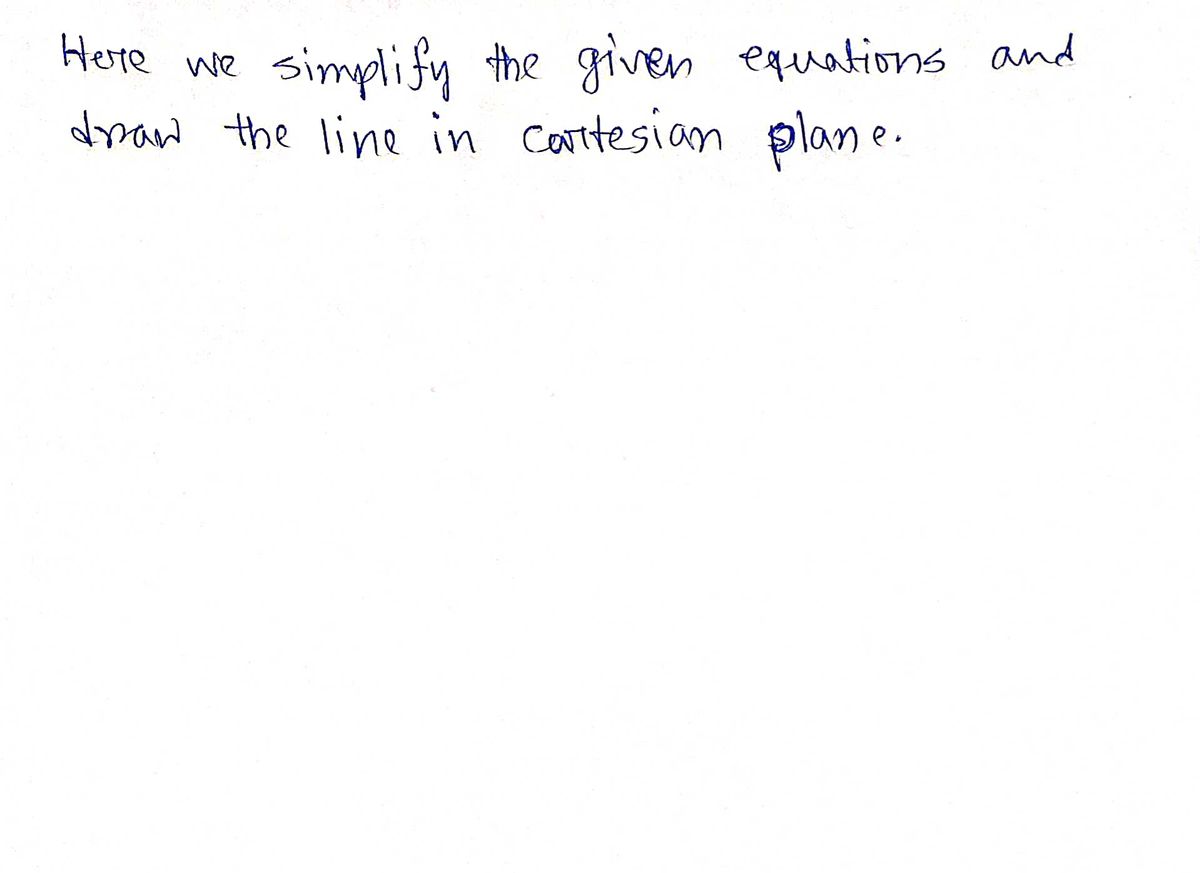 Here we simplify the given equations and
draw the line in cartesian plane.